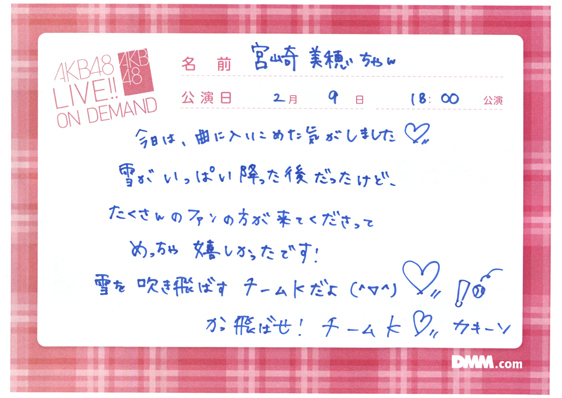 AKB48
LIVE!!
ON DEMAND
AKB
48
名 前 宮崎 美穂 ちゃん
公演日 2月 9日 18:00 公演
今日は、曲に入りこめた気がしました♡
雪が いっぱい 降った 後 だったけど、
たくさんの ファンの 方が 来て くださって
めっちゃ 嬉しかったです!
雪を 吹き飛ばす チームKだよ (^▽^)♡
飛ばせ! チームK♡ カキーン
DMM.com